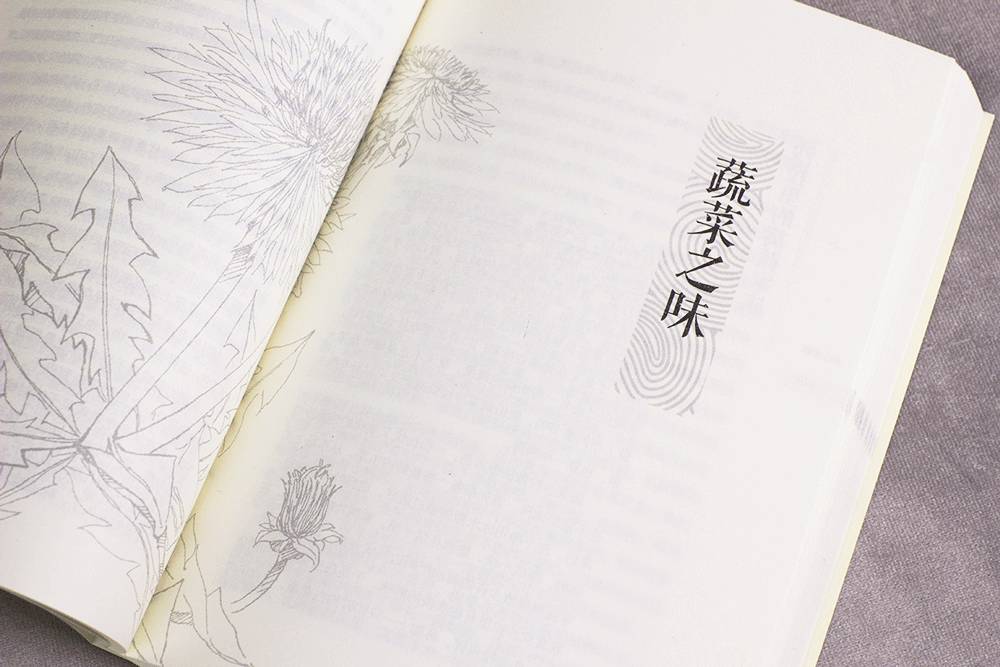 蔬菜之味